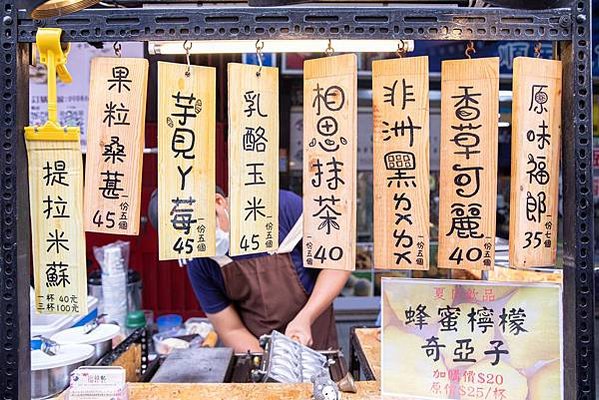 提拉米蘇
一杯40元
三杯100元
果粒桑葚
一份五個
45
芋見丫莓
一份五個
45
乳酪玉米
一份五個
45
相思抹茶
一份五個
40
非洲黑ㄌㄌ
一份五個
香草可麗
一份五個
40
原味福郎
一份七個
35
夏日飲品
蜂蜜檸檬
奇亞子
加購價$20
原價$25/杯